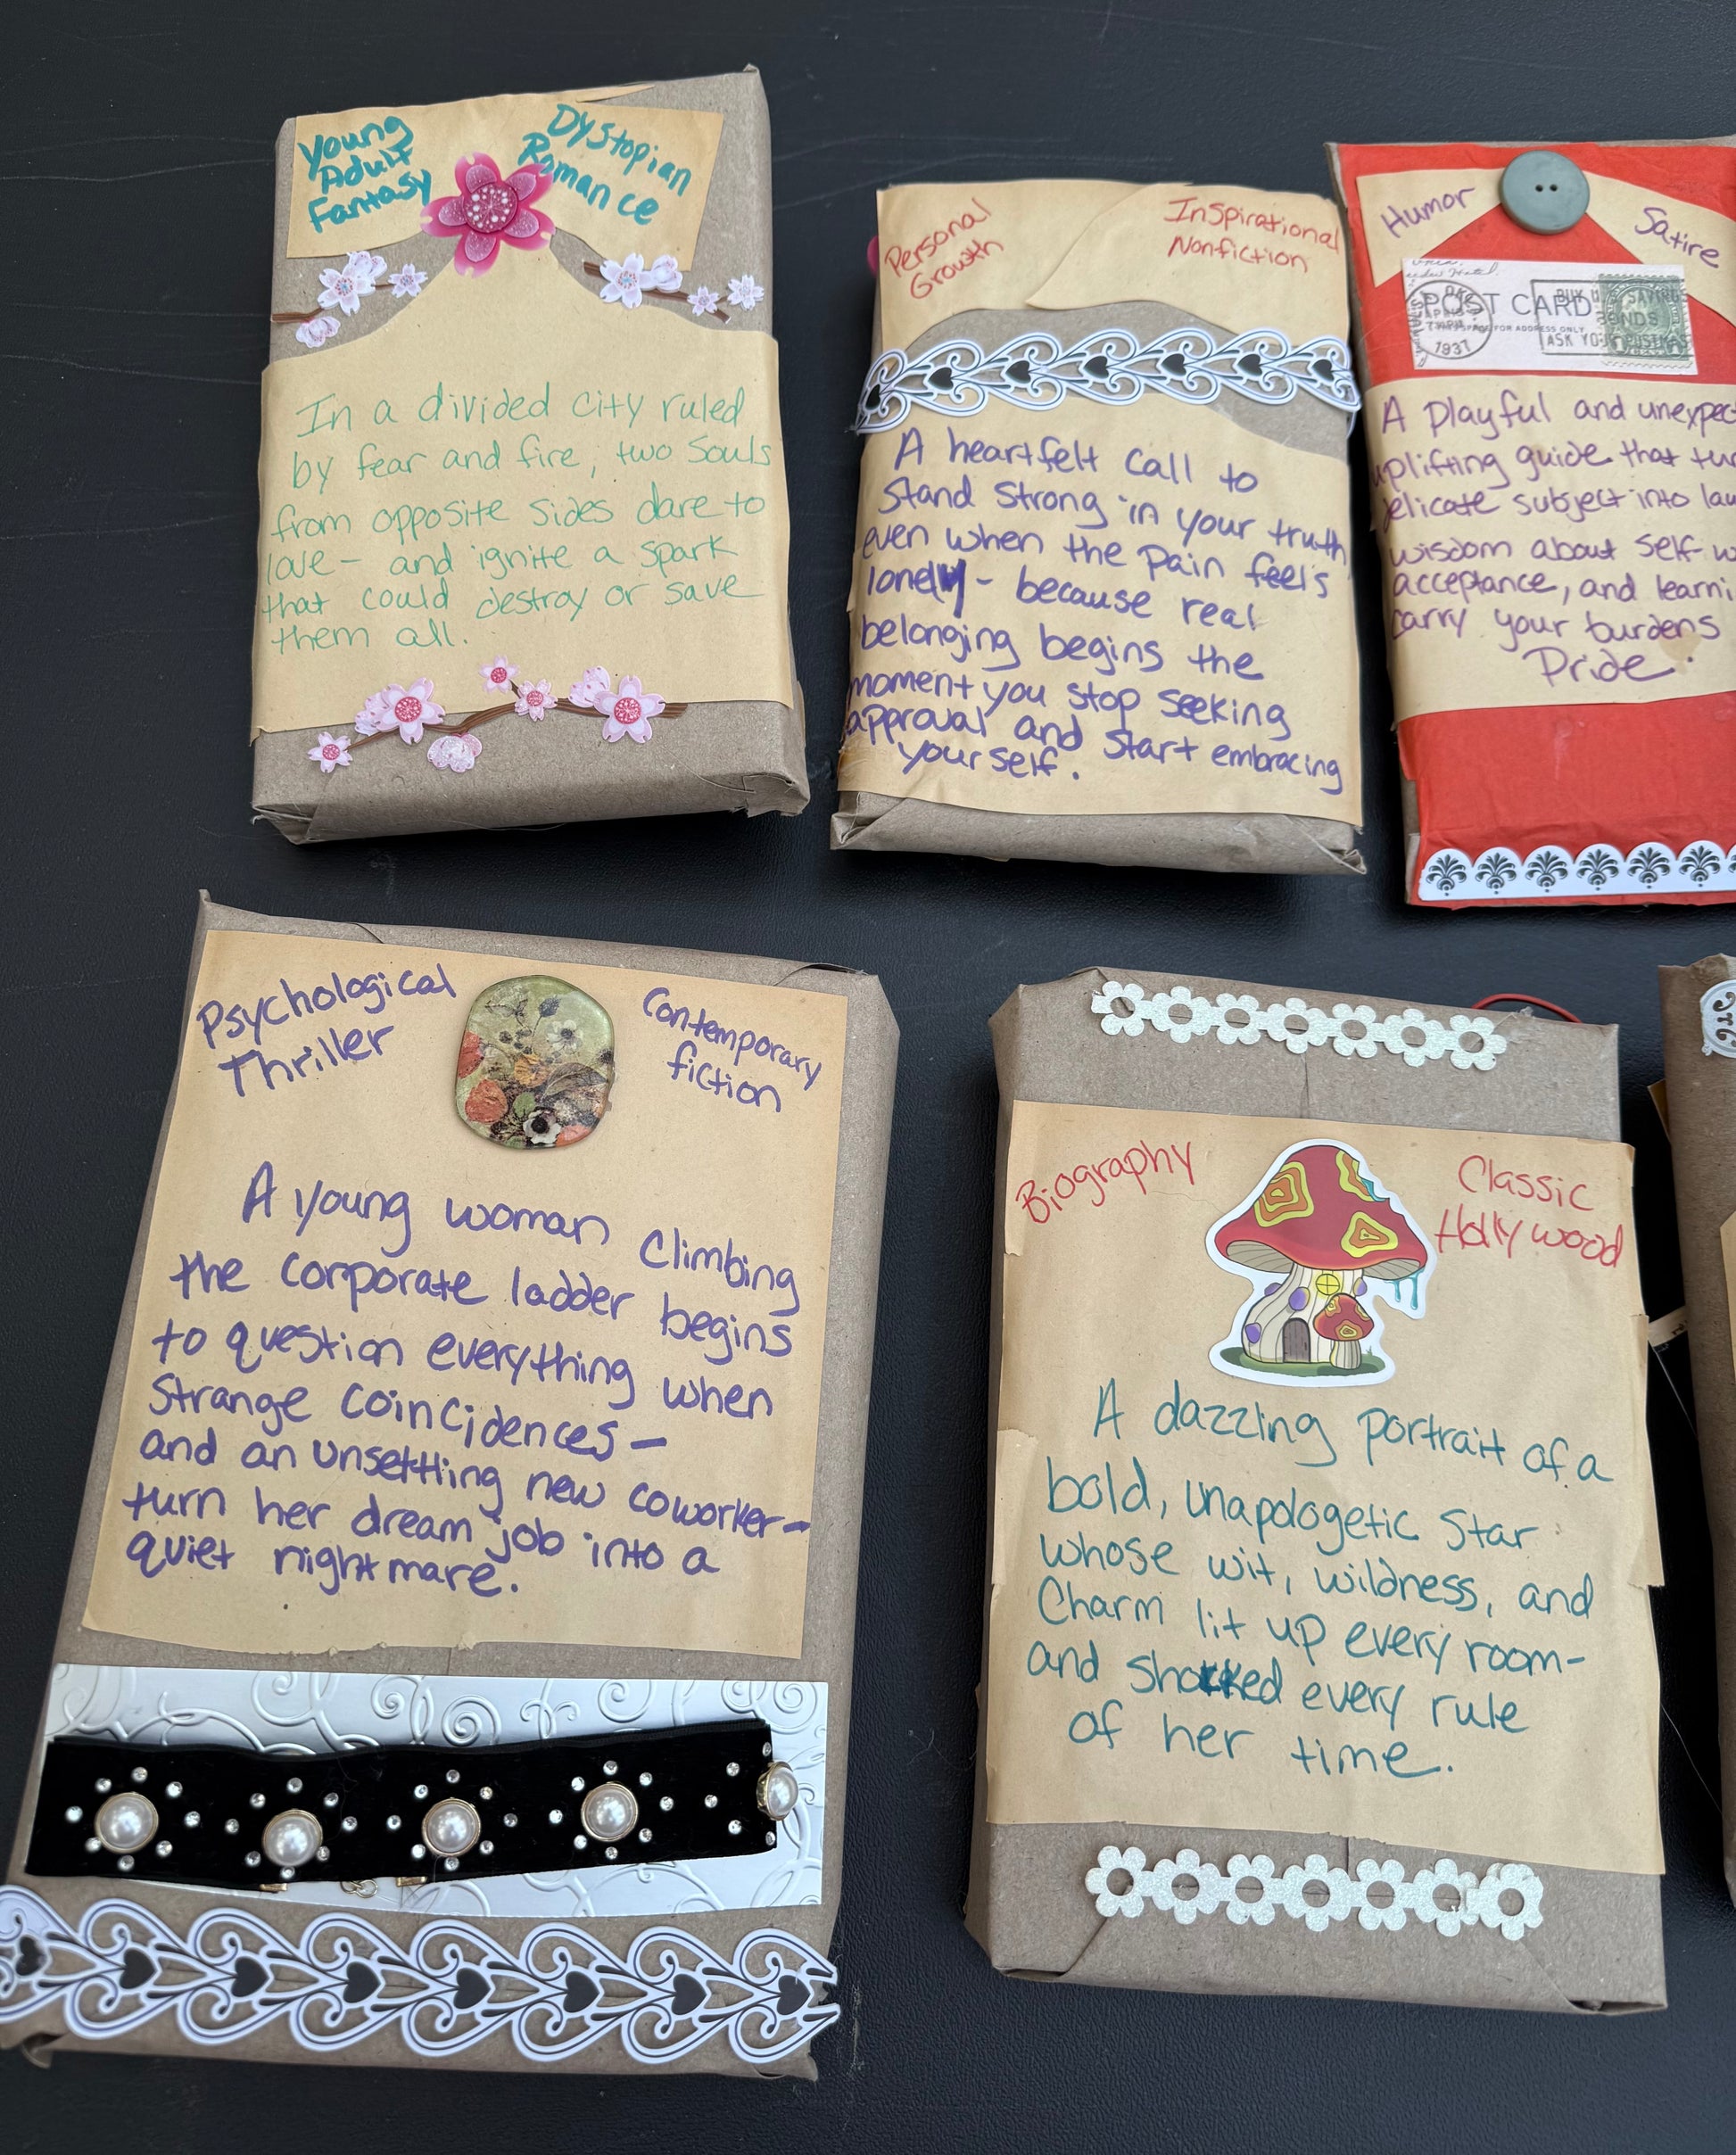 Young
Adult
Fantasy
Dystopian
Romance
In a divided city ruled
by fear and fire, two souls
from opposite sides dare to
love - and ignite a spark
that could destroy or save
them all.
Personal
Growth
Inspirational
Nonfiction
A heartfelt call to
stand strong in your truth
even when the pain feels
lonely - because real
belonging begins the
moment you stop seeking
approval and start embracing
yourself.
Humor
Satire
POST CARD
THIS SPACE FOR ADDRESS ONLY
1937
BUY U.S. SAVINGS
BONDS
ASK YOUR POSTMASTER
A playful and
uplifting guide that
delicate subject into
wisdom about self-
acceptance, and
carry your burdens
Pride.
Psychological
Thriller
Contemporary
fiction
A young woman climbing
the corporate ladder begins
to question everything when
strange coincidences -
and an unsettling new coworker -
turn her dream job into a
quiet nightmare.
Biography
Classic
Hollywood
A dazzling portrait of a
bold, unapologetic star
whose wit, wildness, and
Charm lit up every room -
and shocked every rule
of her time.